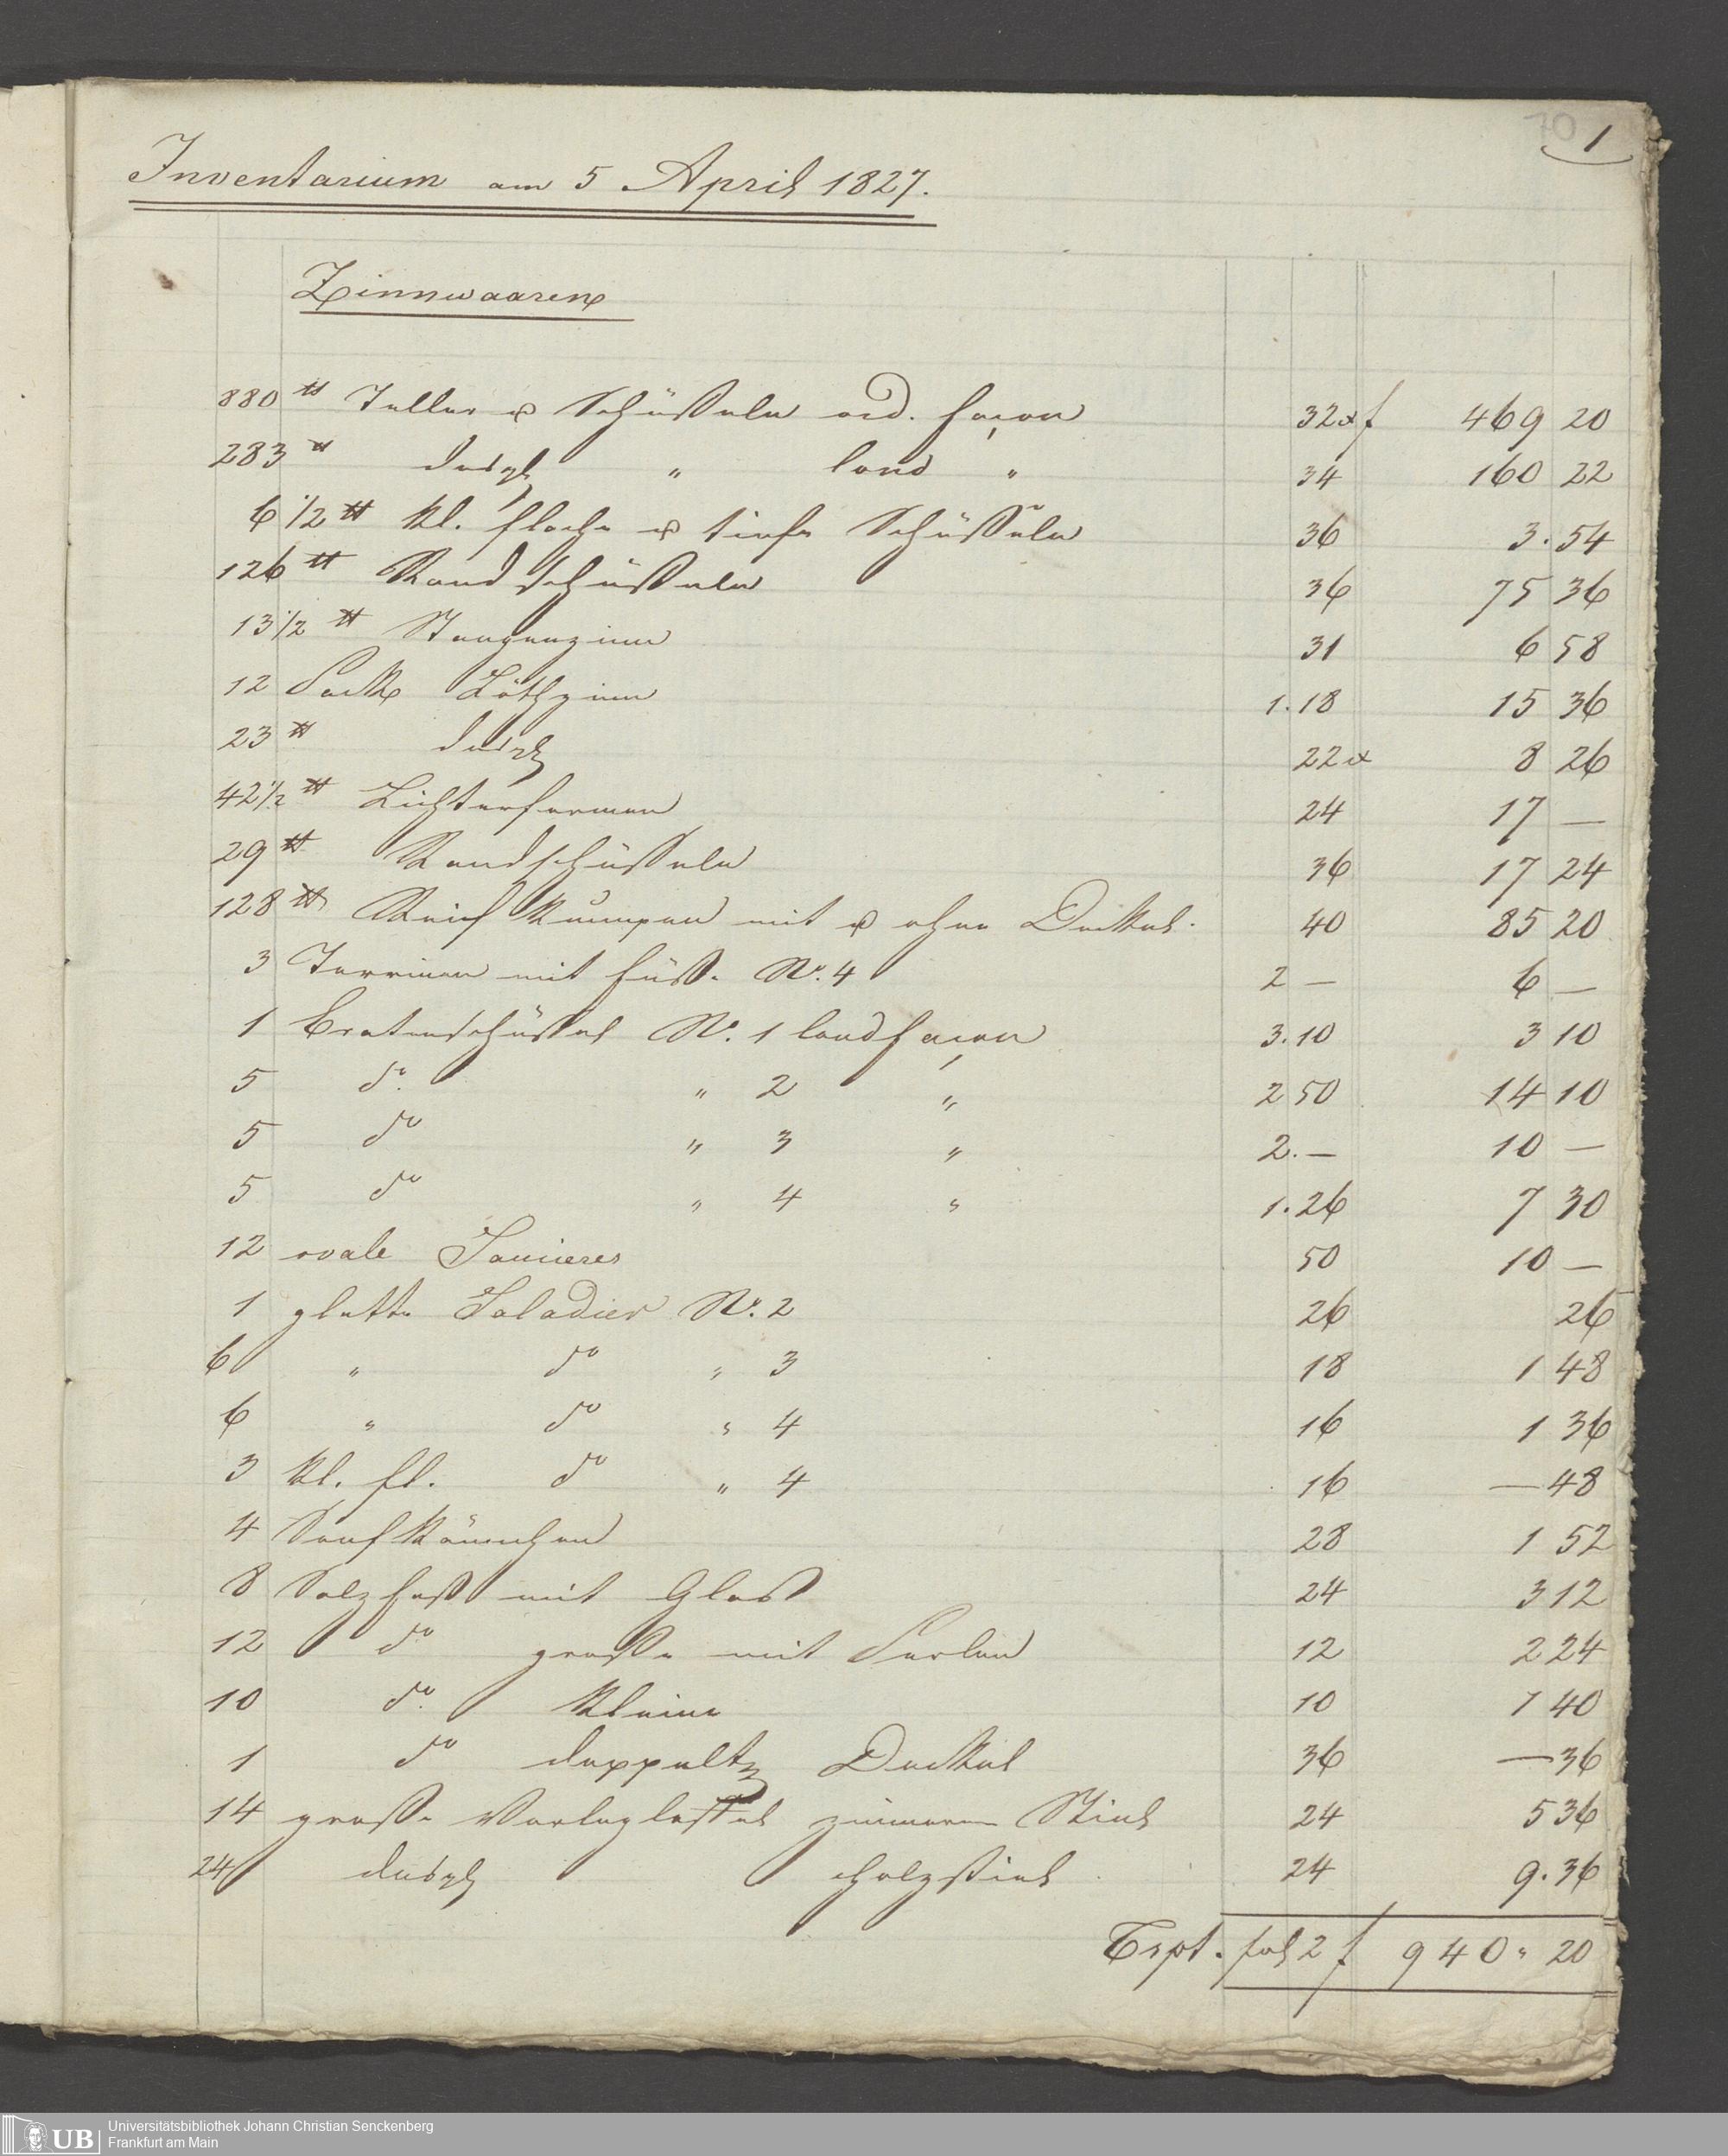 70 1
Inventarium am 5 April 1827.
Zinnwaaren
880 ℔ Teller u Schüßeln ord. façon 32 x f 469 20
283 ℔ desgl " land " 34 160 22
6 1/2 ℔ kl. flache u tiefe Schüßeln 36 3. 54
126 ℔ Randschüßeln 36 75 36
13 1/2 ℔ Stangenzinn 31 6 58
12 Pack Löthzinn 1. 18 15 36
23 ℔ desgl 22 x 8 26
42 1/2 ℔ Lichterformen 24 17 —
29 ℔ Randschüßeln 36 17 24
128 ℔ Reif Kumpen mit u ohne Deckel. 40 85 20
3 Terrinen mit Füße No. 4 2 — 6 —
1 Bratenschüßel No. 1 landfaçon 3. 10 3 10
5 do. " 2 " 2 50 14 10
5 do " 3 " 2. — 10 —
5 do " 4 " 1. 26 7 30
12 ovale Saucieres 50 10 —
1 glatte Saladier No. 2 26 26
6 " do " 3 18 1 48
6 " do " 4 16 1 36
3 kl. fl. do " 4 16 — 48
4 Senfkännchen 28 1 52
8 Salzfaß mit Glas 24 3 12
12 do große mit Perlen 12 2 24
10 do. kleine 10 1 40
1 do doppelt Deckel 36 — 36
14 große Vorleglöffel zinnerne Stiel 24 5 36
24 desgl Holzstiel 24 9. 36
Trpt. fol 2 f 940 " 20
UB Universitätsbibliothek Johann Christian Senckenberg
Frankfurt am Main